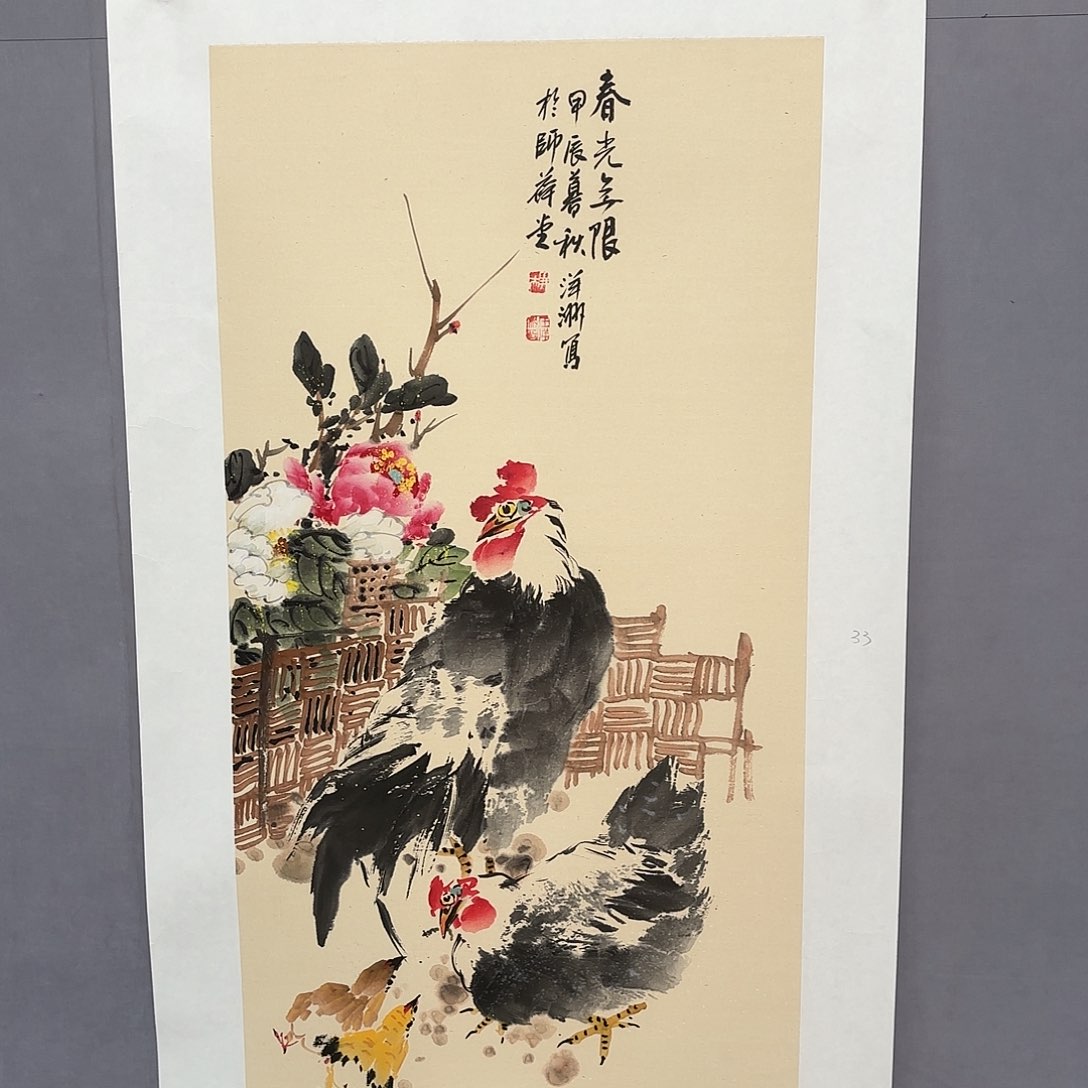 春光无限
甲辰暮秋 洋洲写
於師荷堂
33